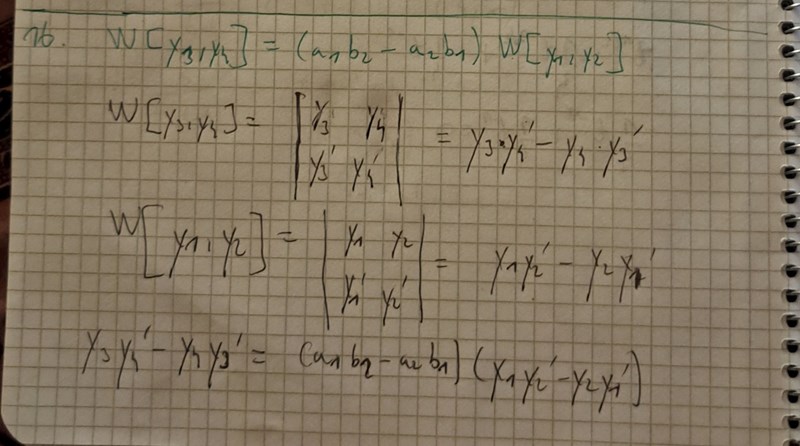 16. W[y3, y4] = (a1b2 - a2b1) W[y1, y2]
W[y3, y4] = | y3 y4 | = y3·y4' - y4·y3'
| y3' y4' |
W[y1, y2] = | y1 y2 | = y1y2' - y2y1'
| y1' y2' |
y3y4' - y4y3' = (a1b2 - a2b1)(y1y2' - y2y1')